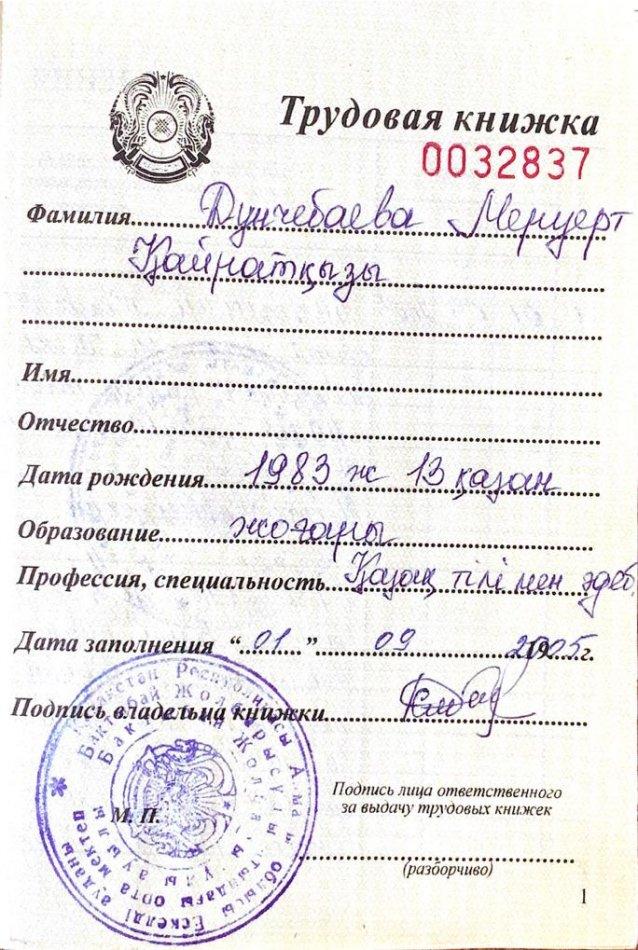 Трудовая книжка
0032837
Фамилия Дунчебаева Меруерт
Қайратқызы
Имя
Отчество
Дата рождения 1983 ж 13 қазан
Образование жоғары
Профессия, специальность Қазақ тілі мен әдеб.
Дата заполнения “01” 09 2005 г.
Подпись владельца книжки
М. П.
Подпись лица ответственного
за выдачу трудовых книжек
(разборчиво)
1
Қазақстан Республикасы Алматы облысы Ескелді ауданы
орта мектеп